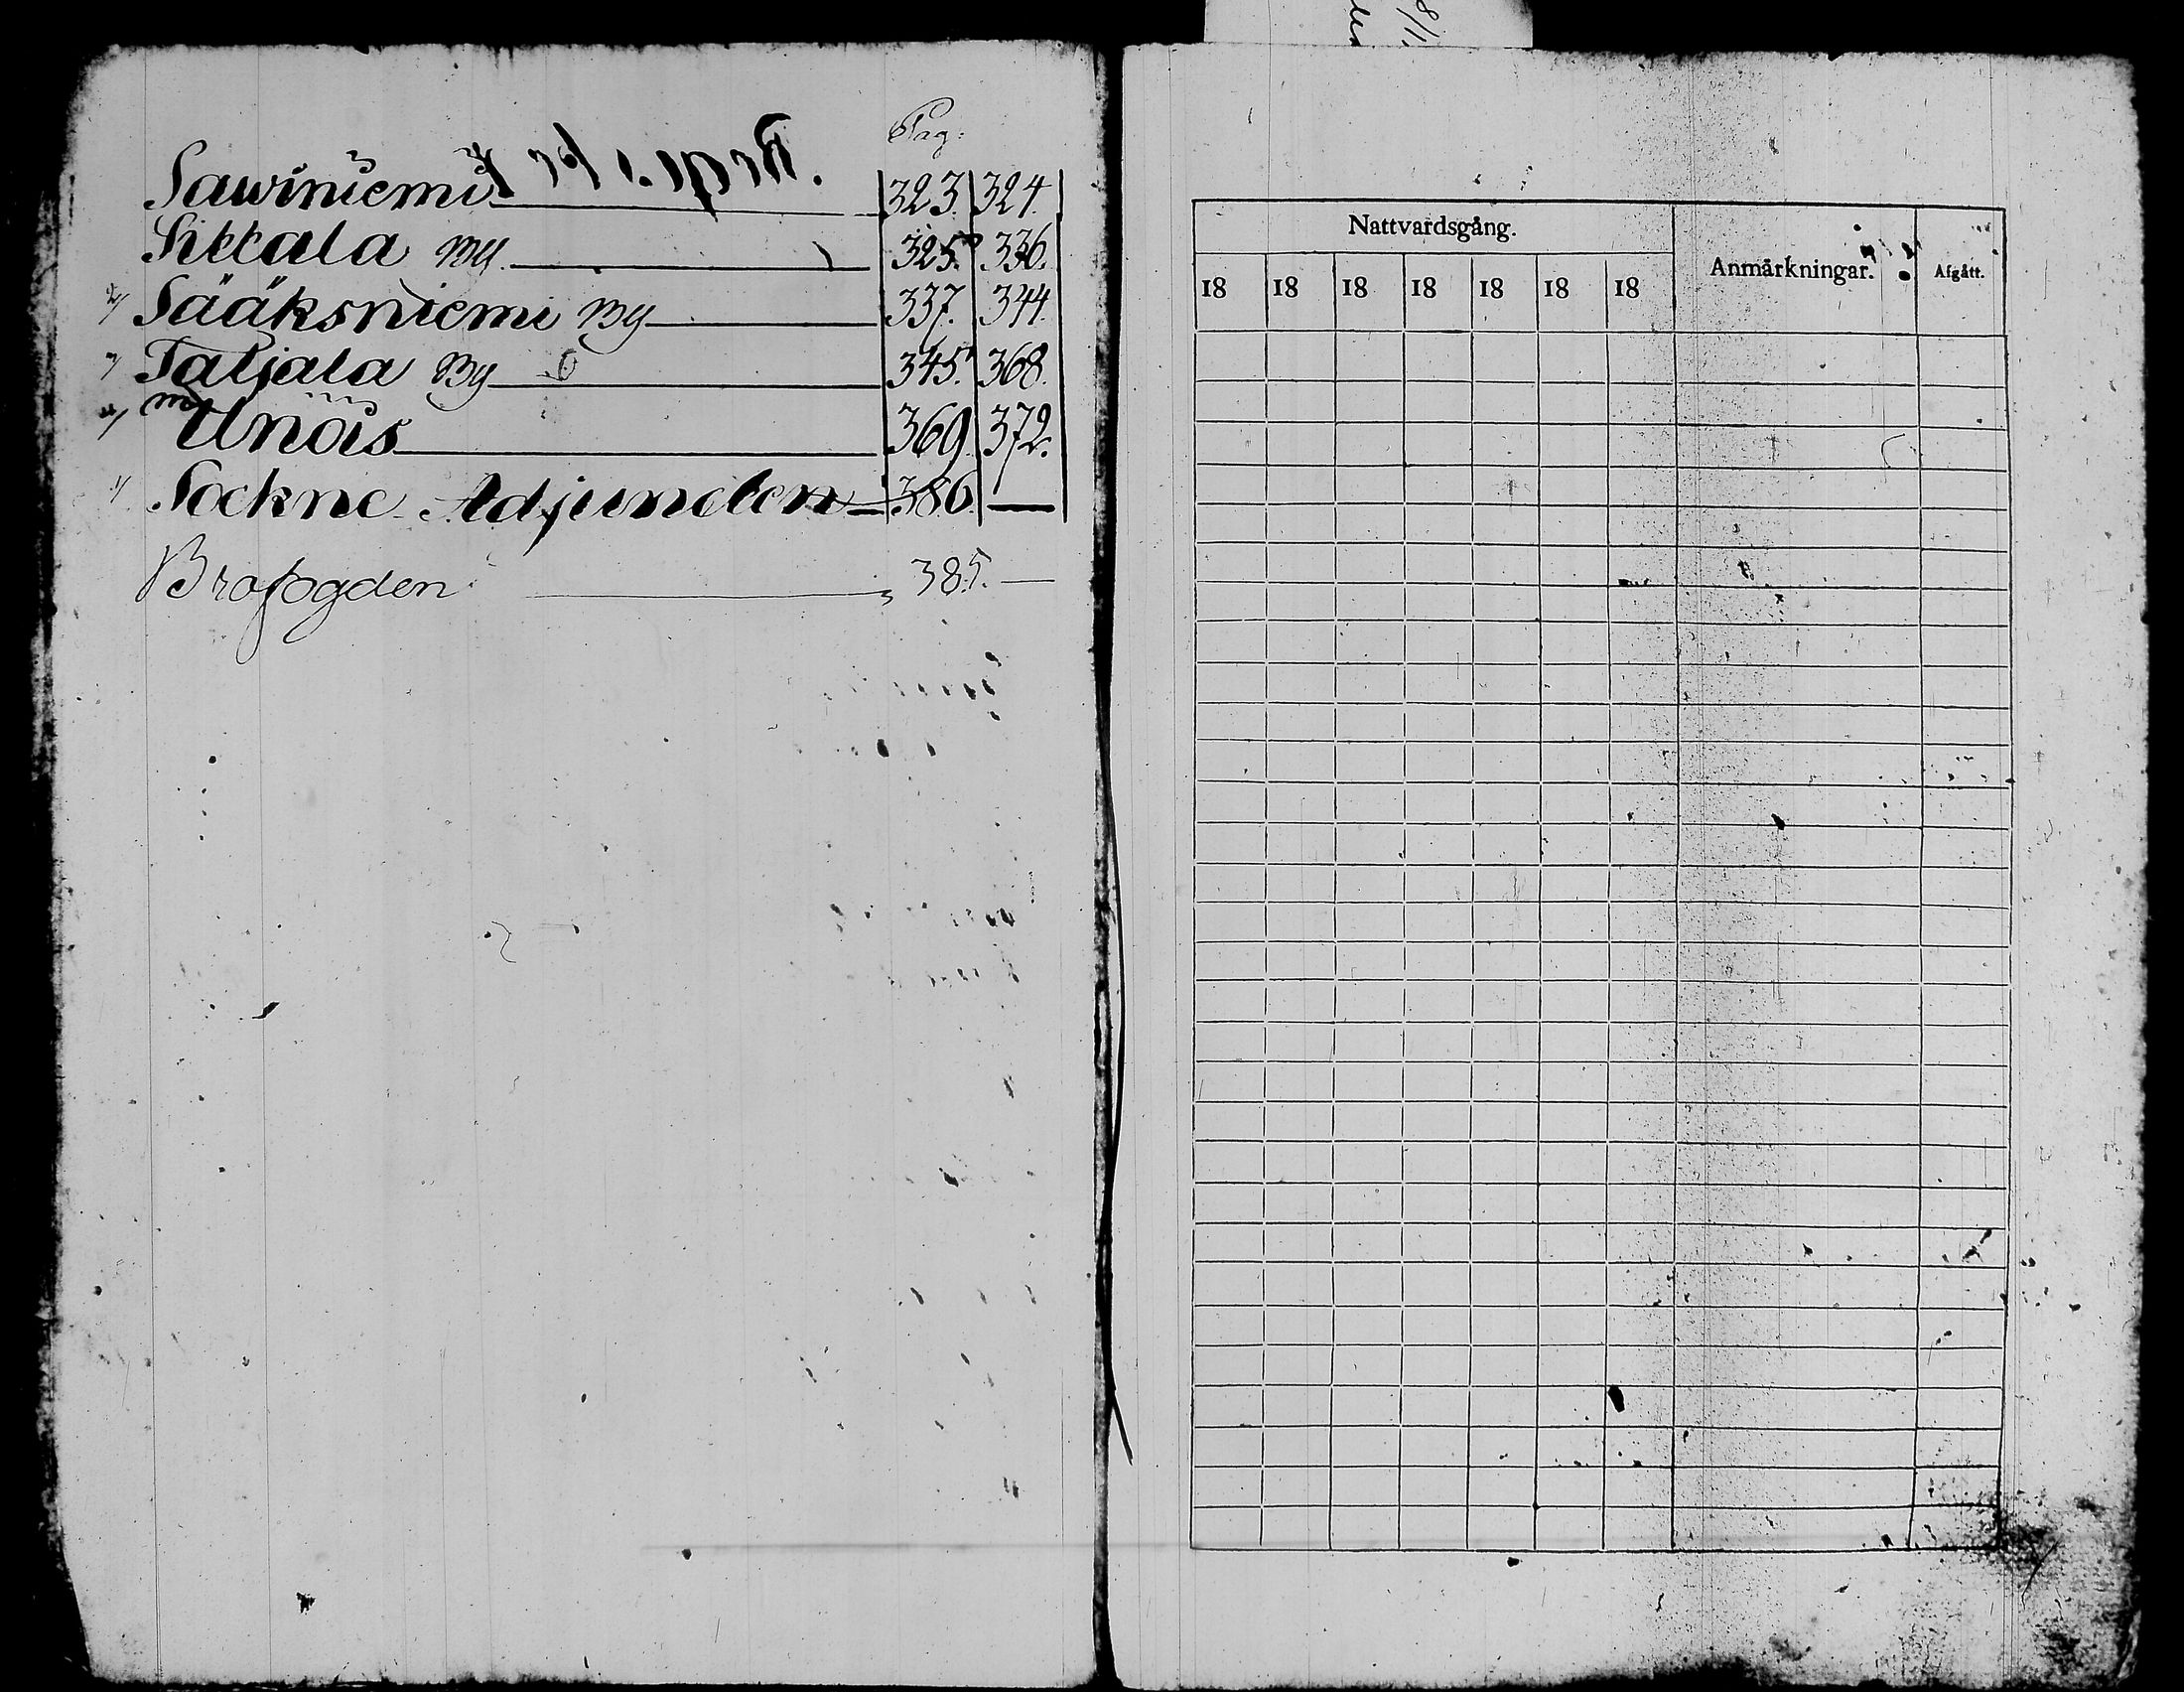 Pag:
Sawiniemi 323. 324.
Sittala By 325. 336.
2/ Sääksniemi By 337. 344.
Taljala By 345. 368.
Unäis 369 372.
1/ Sockne Adjuncten 386. —
Brofogden 385. —
Nattvardsgång. Anmärkningar. Afgått.
18 18 18 18 18 18 18